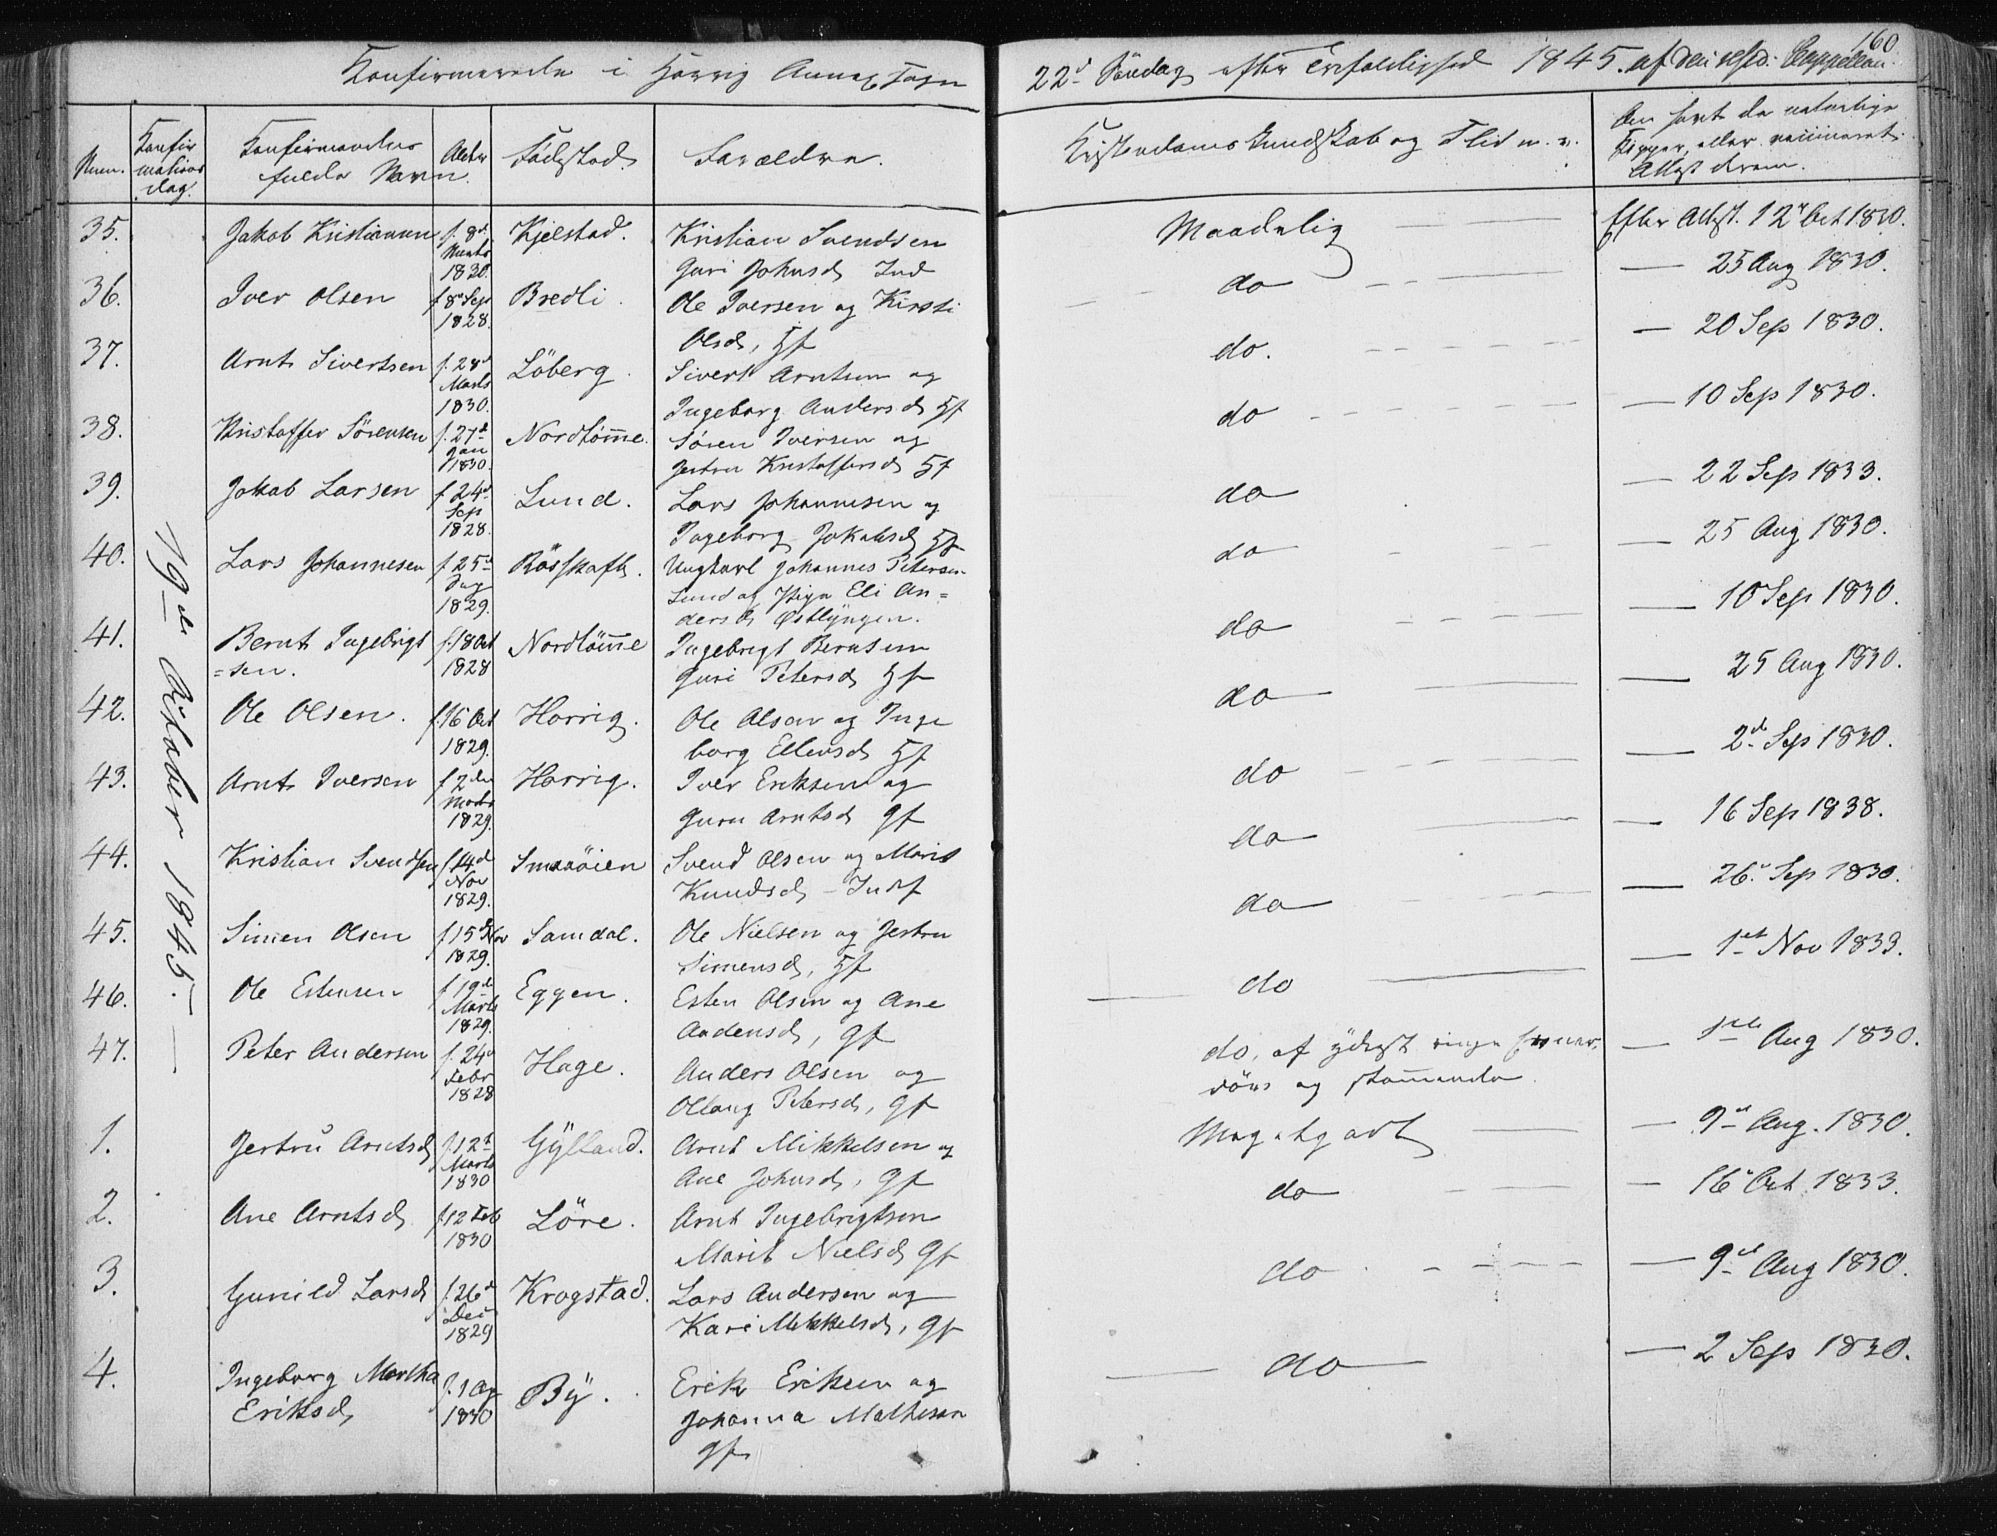 160.
Konfirmerede i Horrig Annex Sogn 22d Søndag efter Trefoldighed 1845. af den resid: Kappellan.
Num. Konfirmations dag. Konfirmandens fulde Navn. Alder Födested. Forældre. Kristendoms Kundskab og Flid m. v. Om havt de naturlige Kopper, eller vaccineret. Attest derom.
19de Oktober 1845.
35. Jakob Kristiansen f. 8d Marts 1830. Kjelstad. Kristian Svendsen Guri Johnsd Ind Maadelig Efter Attest. 12t Oct 1830.
36. Iver Olsen f 8d Sep 1828. Bredli. Ole Iversen og Kirsti Olsd, Hf do — 25 Aug 1830.
37. Arnt Sivertsen f. 28d Marts 1830. Löberg. Sivert Arntsen og Ingeborg Andersd Hf do. — 20 Sep 1830.
38. Kristoffer Sörensen f. 27d Jan 1830. Nordtömme. Sören Iversen og Jertru Kristoffersd Hf do — 10 Sep 1830.
39. Jakob Larsen f 24d Sep 1828. Lund. Lars Johannesen og Ingeborg Jakobsd Hf do — 22 Sep 1833.
40. Lars Johannesen f. 25d 1829. Rösskaft. Ungkarl Johannes Petersen Lund og Pige Eli Andersd Østlyngen. do — 25 Aug 1830.
41. Bernt Ingebrigt=sen. f. 18 Oct 1828 Nordtömme Ingebrigt Berntsen Guri Petersd Hf do — 10 Sep 1830.
42. Ole Olsen. f. 16 Oct 1829. Horrig. Ole Olsen og Ingeborg Ellevsd Hf do — 25 Aug 1830.
43. Arnt Iversen f 2den Marts 1829. Horrig. Iver Eriksen og Guru Arntsd Gf do — 2d Sep 1830.
44. Kristian Svendsen f 14d Nov 1829. Smaaöien Svend Olsen og Marit Knudsd – Indf do — 16 Sep 1838.
45. Simen Olsen f 15d Nov 1829. Samdal. Ole Nielsen og Jertru Simensd, Hf do — 26. Sep 1830.
46. Ole Estensen f 19d Marts 1829. Eggen. Esten Olsen og Ane Andersd, Gf do — 1st Nov 1833.
47. Peter Andersen f. 24d Febr 1828 Hage. Anders Olsen og Ollaug Petersd, Gf do, af yderst ringe og stammende. — Aug 1830.
1. Jertru Arntsd f. 12t Marts 1830 Gylland. Arnt Mikkelsen og Ane Johnsd, Gf Meget godt — 9d Aug. 1830.
2. Ane Arntsd f. 12 Feb 1830 Löre. Arnt Ingebrigtsen Marit Nielsd Gf do — 16 Oct 1833.
3. Gunild Larsd f. 26d Dec 1829 Krogstad. Lars Andersen og Kari Mikkelsd, Gf do — 9d Aug 1830.
4. Ingeborg Martha Eriksd f. 1 Ap 1830 By. Erik Eriksen og Johanna Mathesen Gf do — 2 Sep 1830.